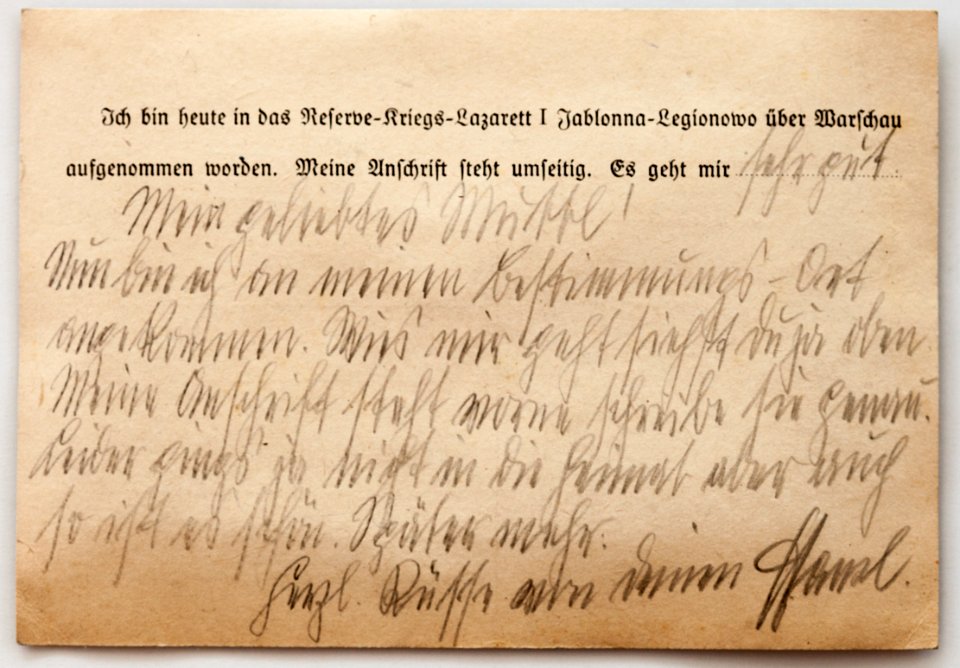 Ich bin heute in das Reserve-Kriegs-Lazarett I Jablonna-Legionowo über Warschau
aufgenommen worden. Meine Anschrift steht umseitig. Es geht mir sehr gut.
Mein geliebtes Muttel!
Nun bin ich an meinen Bestimmungs-Ort
angekommen. Wies mir geht siehst Du ja oben.
Meine Anschrift steht vorne schreibe sie genau.
Leider gings ja nicht in die Heimat aber auch
so ist es schön. Später mehr.
Herzl. Küsse von deinen